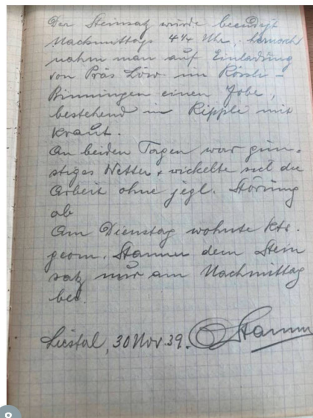 Der Steinsatz wurde beendigt
Nachmittags 4 Uhr, hernach
nahm man auf Einladung
von Präs Löw im Rössli-
Binningen einen Jobe,
bestehend in Rippli mit
Kraut.
An beiden Tagen war gün-
stiges Wetter & wickelte sich die
Arbeit ohne jegl. Störung
ab
Am Dienstag wohnte Kts.
geom. Stamm dem Stein
satz nur am Nachmittag
bei.
Liestal, 30 Nov 39. Stamm
8